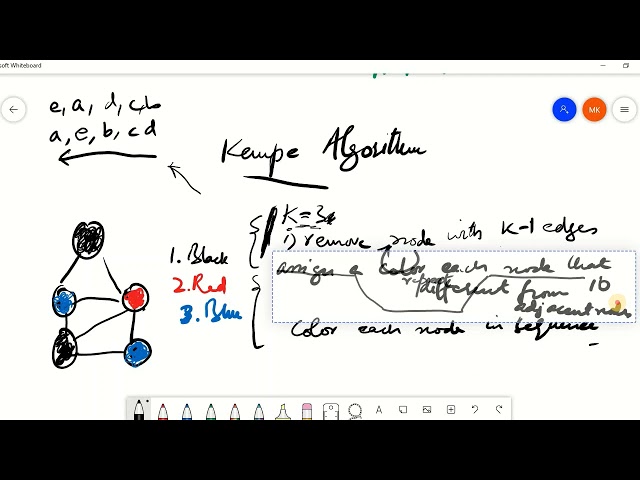 soft Whiteboard
e, a, d, c, b
a, e, b, c d
MK
Kempe Algorithm
K=3
i) remove node with K-1 edges
1. Black
2. Red
3. Blue
assign a color each node that
different from
adjacent
Color each node in sequence
A